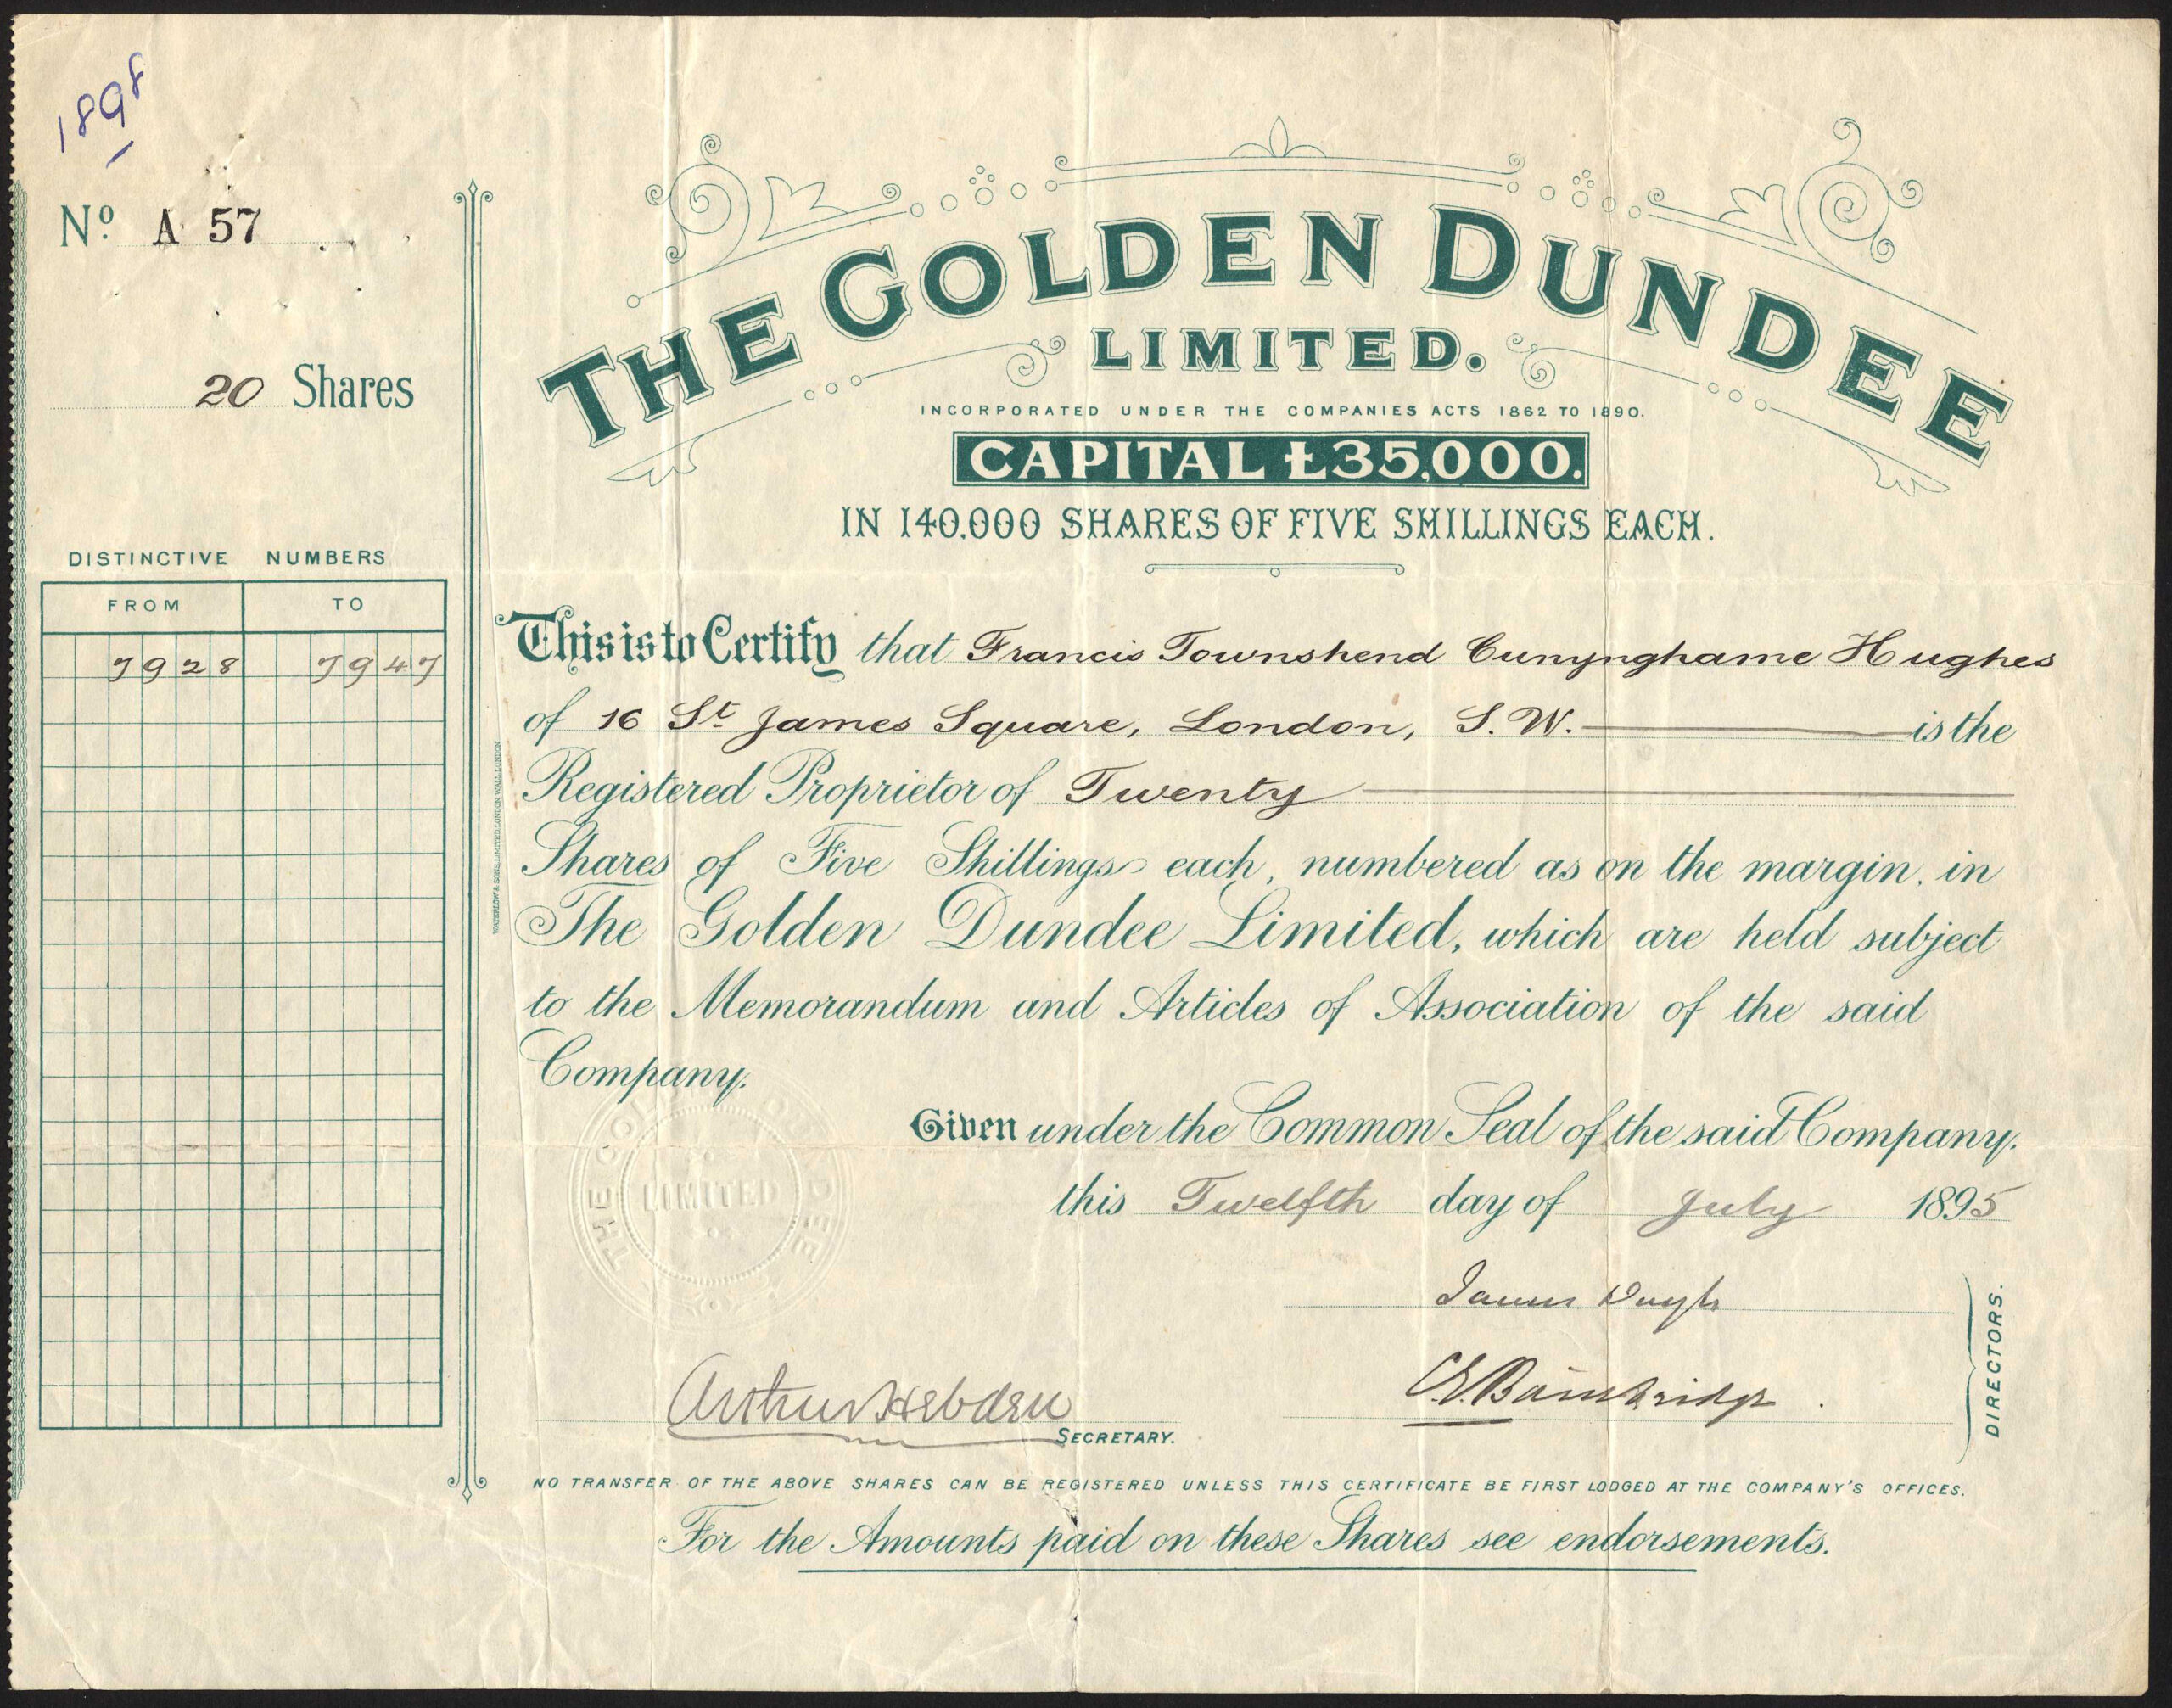 1898
Nº A 57
20 Shares
DISTINCTIVE NUMBERS
FROM TO
7928 7947
THE GOLDEN DUNDEE
LIMITED.
INCORPORATED UNDER THE COMPANIES ACTS 1862 TO 1890.
CAPITAL £35,000.
IN 140,000 SHARES OF FIVE SHILLINGS EACH.
This is to Certify that Francis Townshend Cunynghame Hughes
of 16 St James Square, London, S.W. is the
Registered Proprietor of Twenty
Shares of Five Shillings each, numbered as on the margin, in
The Golden Dundee Limited, which are held subject
to the Memorandum and Articles of Association of the said
Company.
Given under the Common Seal of the said Company.
this Twelfth day of July 1895
THE GOLDEN DUNDEE
LIMITED
James
C. E. Bainbridge.
DIRECTORS.
Arthur Hebden
SECRETARY.
NO TRANSFER OF THE ABOVE SHARES CAN BE REGISTERED UNLESS THIS CERTIFICATE BE FIRST LODGED AT THE COMPANY'S OFFICES.
For the Amounts paid on these Shares see endorsements.
WATERLOW & SONS LIMITED, LONDON WALL, LONDON